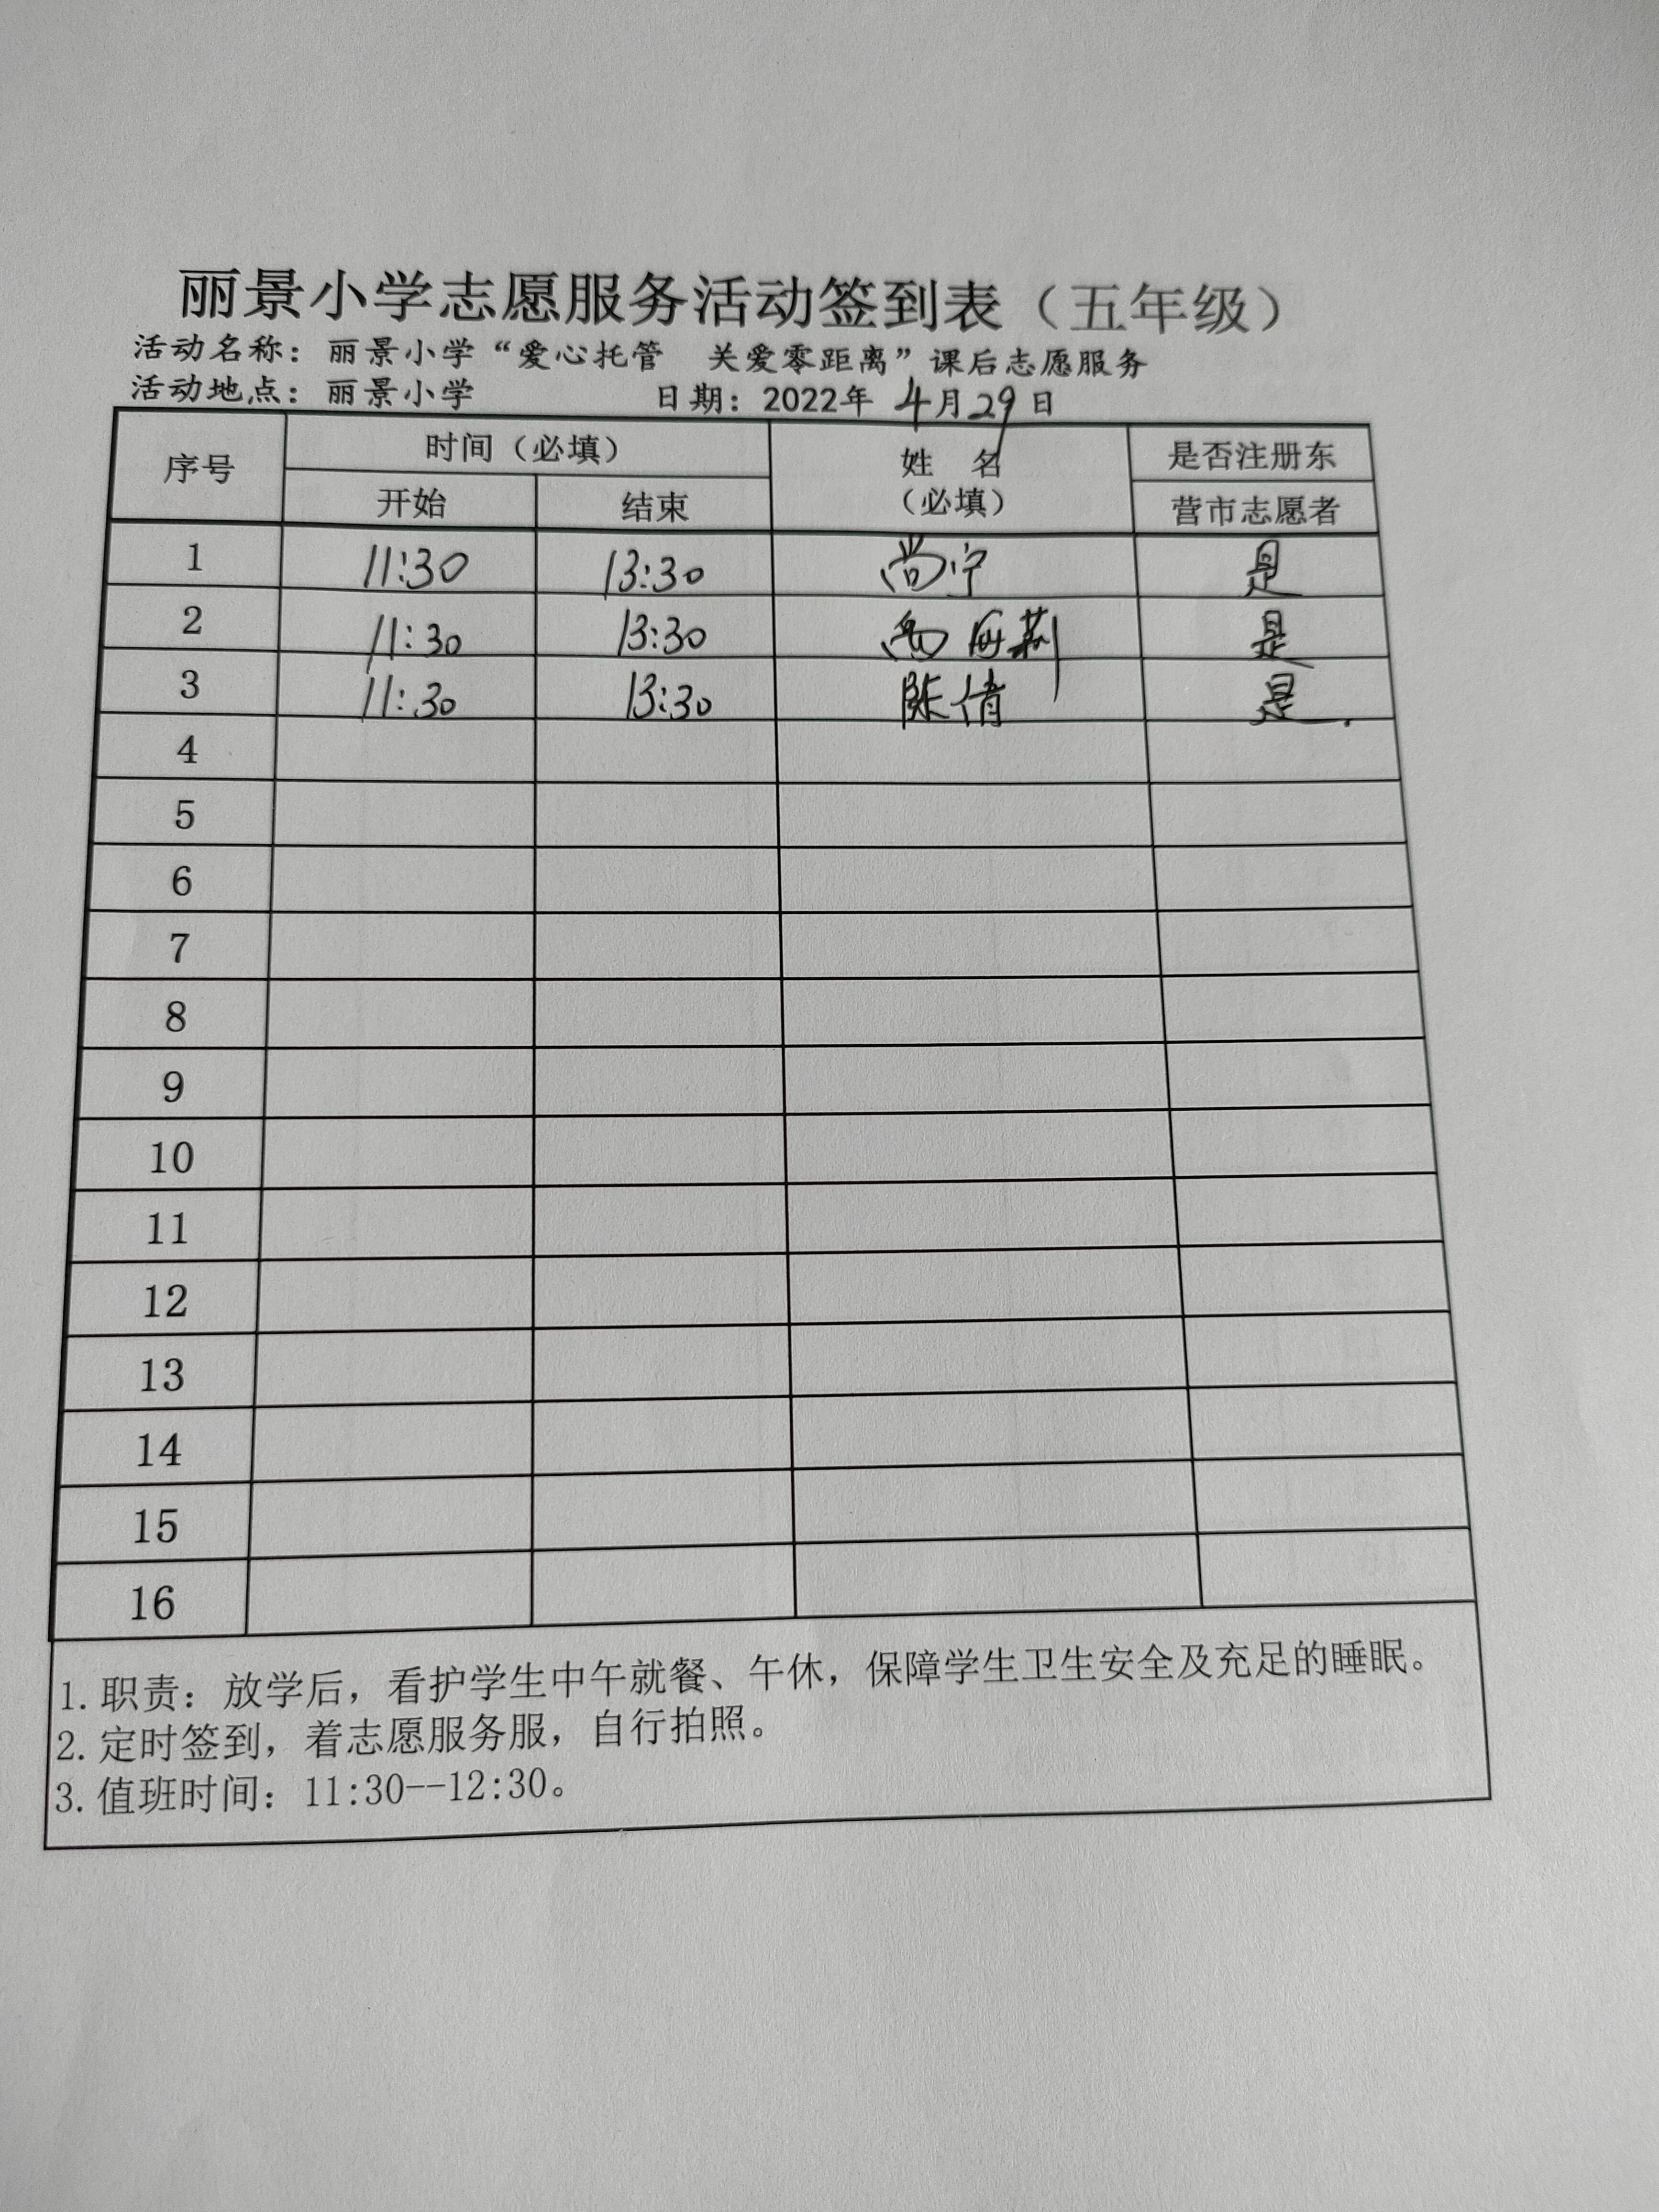 丽景小学志愿服务活动签到表（五年级）
活动名称：丽景小学“爱心托管 关爱零距离”课后志愿服务
活动地点：丽景小学 日期：2022年 4月29日
序号 时间（必填） 姓 名 是否注册东
开始 结束 （必填） 营市志愿者
1 11:30 13:30 尚宁 是
2 11:30 13:30 是
3 11:30 13:30 陈倩 是.
4
5
6
7
8
9
10
11
12
13
14
15
16
1. 职责：放学后，看护学生中午就餐、午休，保障学生卫生安全及充足的睡眠。
2. 定时签到，着志愿服务服，自行拍照。
3. 值班时间：11:30--12:30。